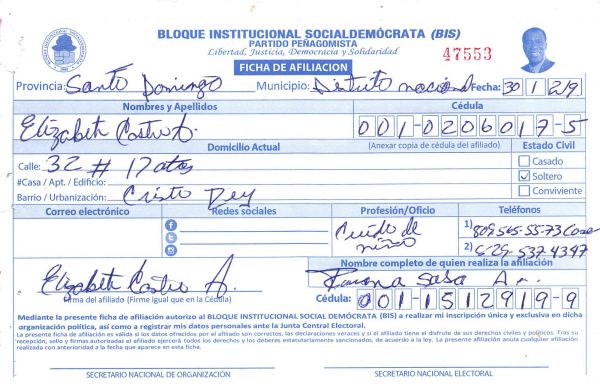 BLOQUE INSTITUCIONAL SOCIALDEMÓCRATA (BIS)
PARTIDO PEÑAGOMISTA
Libertad, Justicia, Democracia y Solidaridad
47553
FICHA DE AFILIACION
Provincia: Santo Domingo Municipio: Distrito nacional Fecha: 30/2/9
Nombres y Apellidos Cédula
Elizabeth Castro A. 001-0206017-5
Domicilio Actual (Anexar copia de cédula del afiliado) Estado Civil
Calle: 32 # 17 atos Casado
#Casa / Apt. / Edificio: Soltero
Barrio / Urbanización: Cristo Rey Conviviente
Correo electrónico Redes sociales Profesión/Oficio Teléfonos
Cuido de niño 1) 809-565-55-73 Casa
2) 829-537-4347
Nombre completo de quien realiza la afiliación
Elizabeth Castro A. Ramona Sosa
Firma del afiliado (Firme igual que en la Cédula) Cédula: 001-1512919-9
Mediante la presente ficha de afiliación autorizo al BLOQUE INSTITUCIONAL SOCIAL DEMÓCRATA (BIS) a realizar mi inscripción única y exclusiva en dicha
organización política, así como a registrar mis datos personales ante la Junta Central Electoral.
La presente ficha de afiliación es válida si los datos ofrecidos por el afiliado son correctos, las declaraciones veraces y si el afiliado tiene el disfrute de sus derechos civiles y políticos. Tras su
recepción, sello y firmas autorizadas el afiliado ejercerá todos los derechos y los deberes estatutariamente sancionados, de acuerdo a la ley. La presente afiliación anula cualquier afiliación
realizada con anterioridad a la fecha que aparece en esta ficha.
SECRETARIO NACIONAL DE ORGANIZACIÓN SECRETARIO NACIONAL ELECTORAL